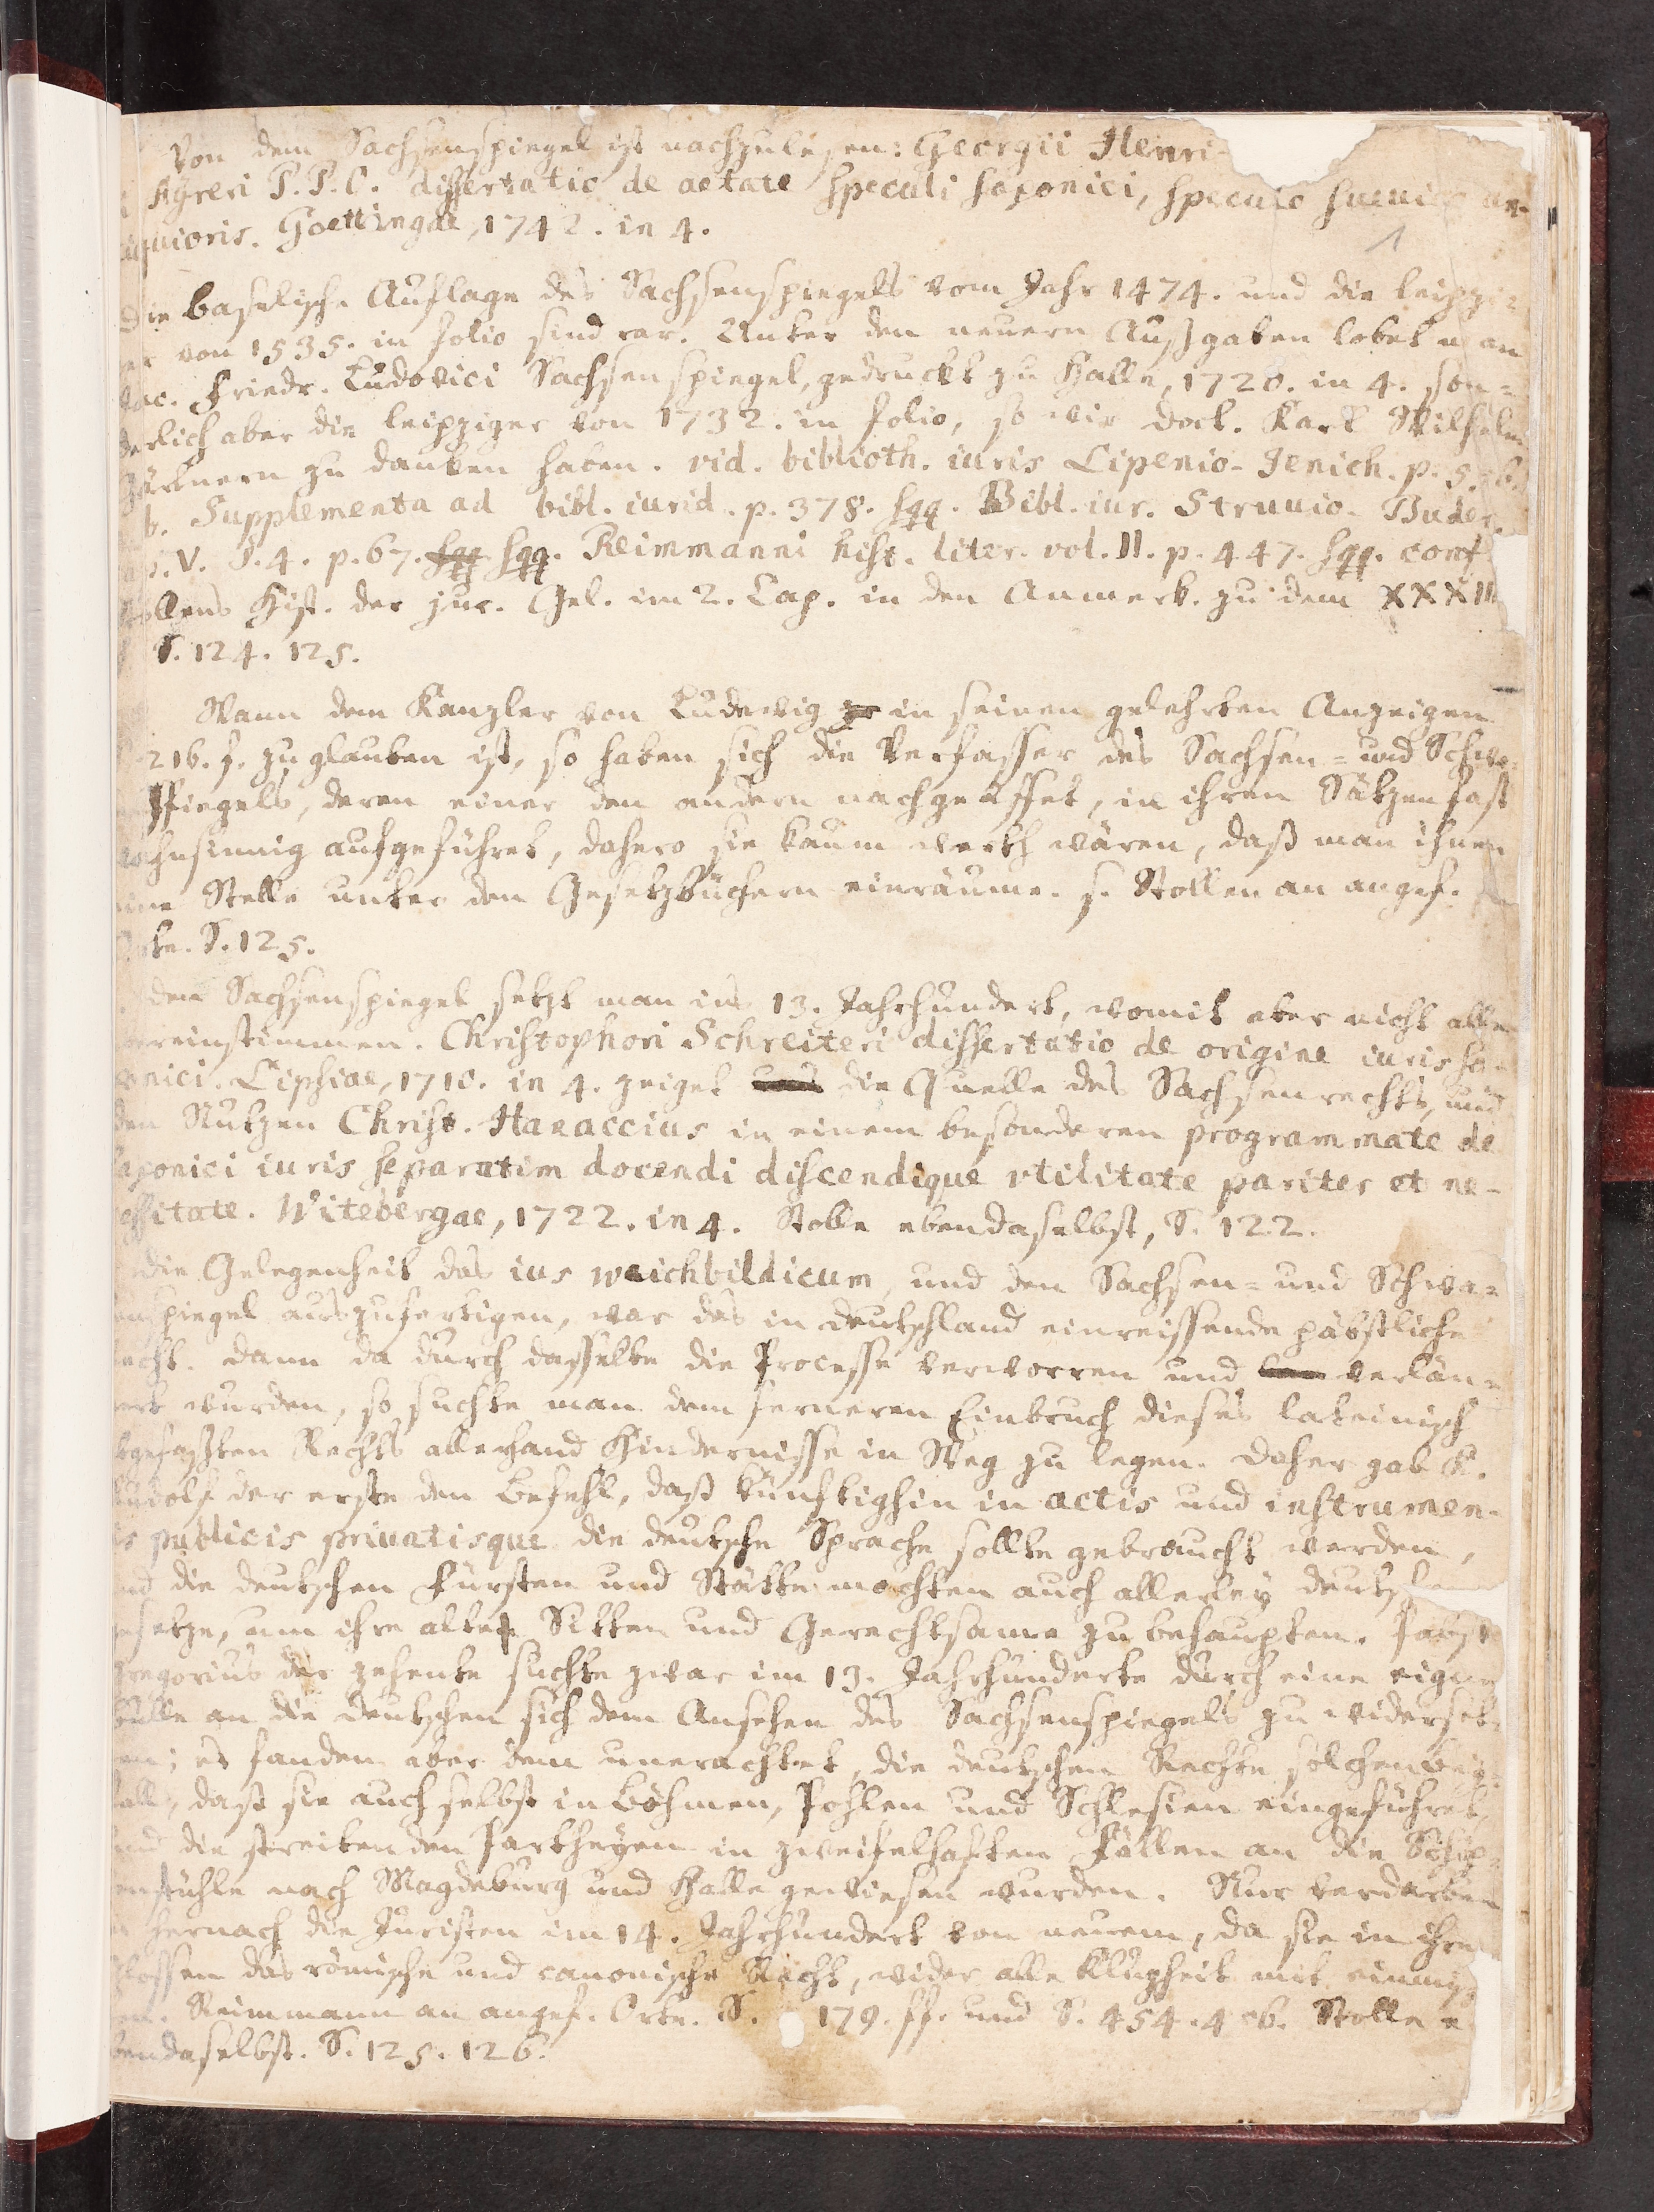 Von dem Sachsenspiegel ist nachzulesen: Georgii Henri-
i Ayreri P. P. O. dissertatio de aetate speculi saxonici, speculo sueuico an-
iquioris. Goettingae, 1742. in 4.
1
Die baselische Auflage des Sachsenspiegels vom Jahr 1474. und die leipzi-
er von 1535. in folio sind rar. Unter den neuern Außgaben lobet man
Jac. Friedr. Ludovici Sachsenspiegel, gedruckt zu Halle, 1720. in 4. son-
derlich aber die leipziger von 1732. in folio, so wir doct. Karl Wilhelm
Gärtnern zu danken haben. vid. biblioth. iuris Lipenio-Jenich. p.
b. Supplementa ad bibl. iurid. p. 378. sqq. Bibl. iur. Struuio-Buder.
ap. V. §. 4. p. 67. sqq sqq. Reimmanni hist. liter. vol. II. p. 447. sqq. conf
Stollens Hist. der jur. Gel. im 2. Cap. in den Anmerk. zu dem XXXII
S. 124. 125.
Wann dem Kanzler von Ludewig in seinen gelehrten Anzeigen
216. f. zu glauben ist, so haben sich die Verfasser des Sachsen- und Schwa-
spiegels, deren einer den andern nachgeäffet, in ihren Sätzen fast
wahnsinnig aufgeführet, dahero sie kaum werth wären, daß man ihnen
eine Stelle unter den Gesetzbüchern einräume. s. Stollen an angef.
Orte. S. 125.
den Sachsenspiegel setzt man ins 13. Jahrhundert, womit aber nicht alle
übereinstimmen. Christophori Schreiteri dissertatio de origine iuris sa-
xonici. Lipsiae, 1710. in 4. zeiget uns die Quelle des Sachsenrechts, und
den Nutzen Christ. Hanaccius in einem besonderen programmate de
saxonici iuris separatim docendi discendique vtilitate pariter et ne-
cessitate. Witebergae, 1722. in 4. Stolle ebendaselbst, S. 122.
die Gelegenheit das ius weichbildicum, und den Sachsen- und Schwa-
enspiegel auszufertigen, war das in deutschland einreissende päbstliche
recht. dann da durch dasselbe die Processe verworren und verlän-
ert wurden, so suchte man dem ferneren Einbruch dieses lateinisch
bgefaßten Rechts allerhand Hindernisse in Weg zu legen. daher gab K.
Rudolf der erste den Befehl, daß künftighin in actis und instrumen-
is publicis priuatisque die deutsche Sprache sollte gebraucht werden,
und die deutschen Fürsten und Stätte machten auch allerley deutsche
gesetze, um ihre alten Sitten und Gerechtsame zu behaupten. Pabst
Gregorius der zehente suchte zwar im 13. Jahrhunderte durch eine eigene
Bulle an die deutschen sich dem Ansehen des Sachsenspiegels zu widerset-
en; es fanden aber dem unerachtet, die deutschen Rechte solchen bey-
fall, daß sie auch selbst in Böhmen, Pohlen und Schlesien eingeführet,
und die streitenden Partheyen in zweifelhaften Fällen an die Schöp-
enstühle nach Magdeburg und Halle gewiesen wurden. Nur verdarben
hernach die Juristen im 14. Jahrhundert von neuem, da sie in ihre
Glossen das römische und canonische Recht, wider alle Klugheit mit einmisch-
en. Reimmann an angef. Orte. S. 179. ff. und S. 454. Stolle e-
bendaselbst. S. 125. 126.